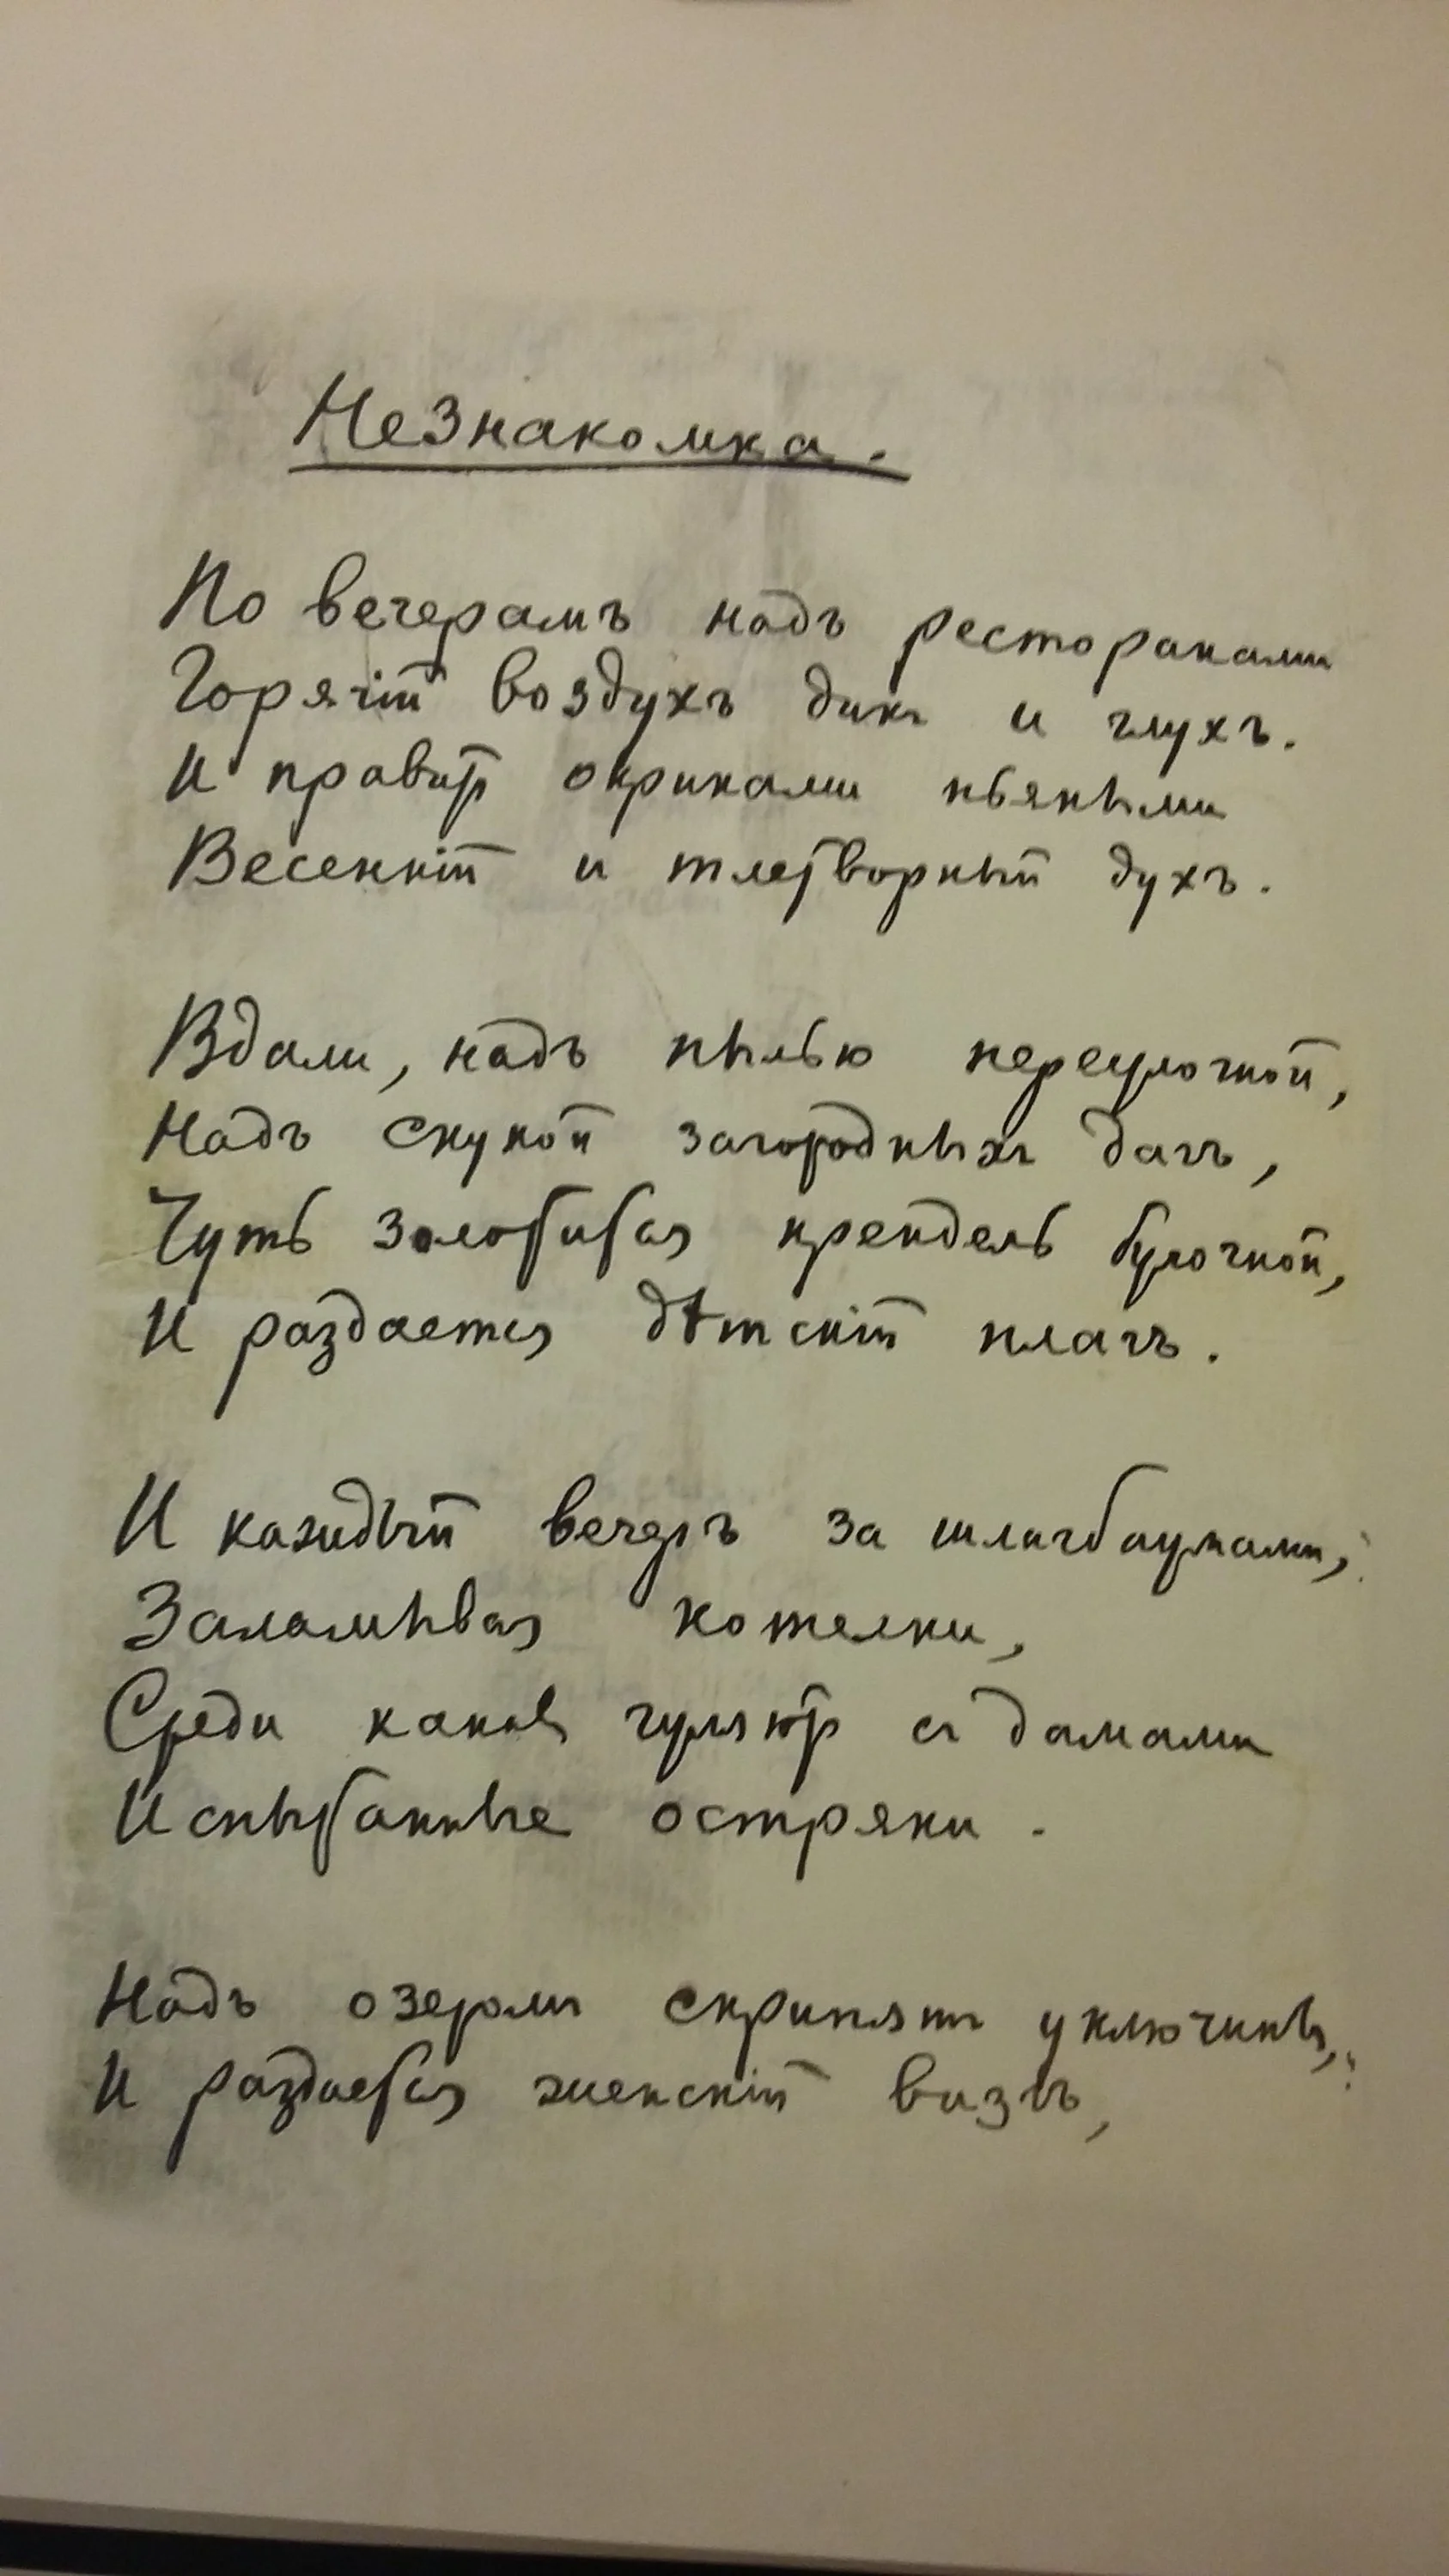 Незнакомка.
По вечерамъ надъ ресторанами
Горячій воздухъ дикъ и глухъ.
И правитъ окриками пьяными
Весенній и тлетворный духъ.
Вдали, надъ пылью переулочной,
Надъ скукой загородныхъ дачъ,
Чуть золотится крендель булочной,
И раздается дѣтскій плачъ.
И каждый вечеръ за шлагбаумами,
Заламывая котелки,
Среди канавъ гуляютъ съ дамами
Испытанные остряки.
Надъ озеромъ скрипятъ уключины,
И раздается женскій визгъ,